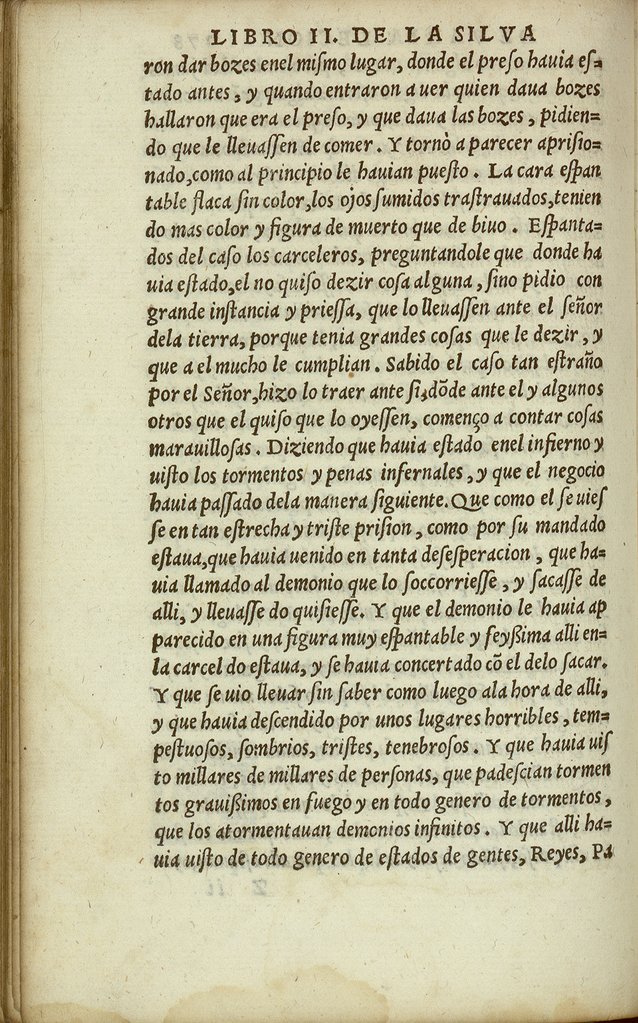 LIBRO II. DE LA SILVA
ron dar bozes enel miſmo lugar, donde el preſo hauia eſ=
tado antes, y quando entraron a uer quien daua bozes
hallaron que era el preſo, y que daua las bozes, pidien=
do que le lleuaſſen de comer. Y tornò a parecer apriſio=
nado,como al principio le hauian pueſto. La cara eſpan
table flaca ſin color,los ojos ſumidos traſtrauados,tenien
do mas color y figura de muerto que de biuo. Eſpanta=
dos del caſo los carceleros, preguntandole que donde ha
uia eſtado,el no quiſo dezir coſa alguna, ſino pidio con
grande inſtancia y prieſſa, que lo lleuaſſen ante el ſeñor
dela tierra, porque tenia grandes coſas que le dezir, y
que a el mucho le cumplian. Sabido el caſo tan eſtraño
por el Señor,hizo lo traer ante ſi,dõde ante el y algunos
otros que el quiſo que lo oyeſſen, començo a contar coſas
marauilloſas. Diziendo que hauia eſtado enel infierno y
uiſto los tormentos y penas infernales, y que el negocio
hauia paſſado dela manera ſiguiente. Que como el ſe uieſ
ſe en tan eſtrecha y triſte priſion, como por ſu mandado
eſtaua,que hauia uenido en tanta deſeſperacion, que ha=
uia llamado al demonio que lo ſoccorrieſſe, y ſacaſſe de
alli, y lleuaſſe do quiſieſſe. Y que el demonio le hauia ap
parecido en una figura muy eſpantable y feyßima alli en=
la carcel do eſtaua, y ſe hauia concertado cõ el delo ſacar.
Y que ſe uio lleuar ſin ſaber como luego ala hora de alli,
y que hauia deſcendido por unos lugares horribles, tem=
peſtuoſos, ſombrios, triſtes, tenebroſos. Y que hauia uiſ
to millares de millares de perſonas, que padeſcian tormen
tos grauißimos en fuego y en todo genero de tormentos,
que los atormentauan demonios infinitos. Y que alli ha=
uia uiſto de todo genero de eſtados de gentes, Reyes, Pa